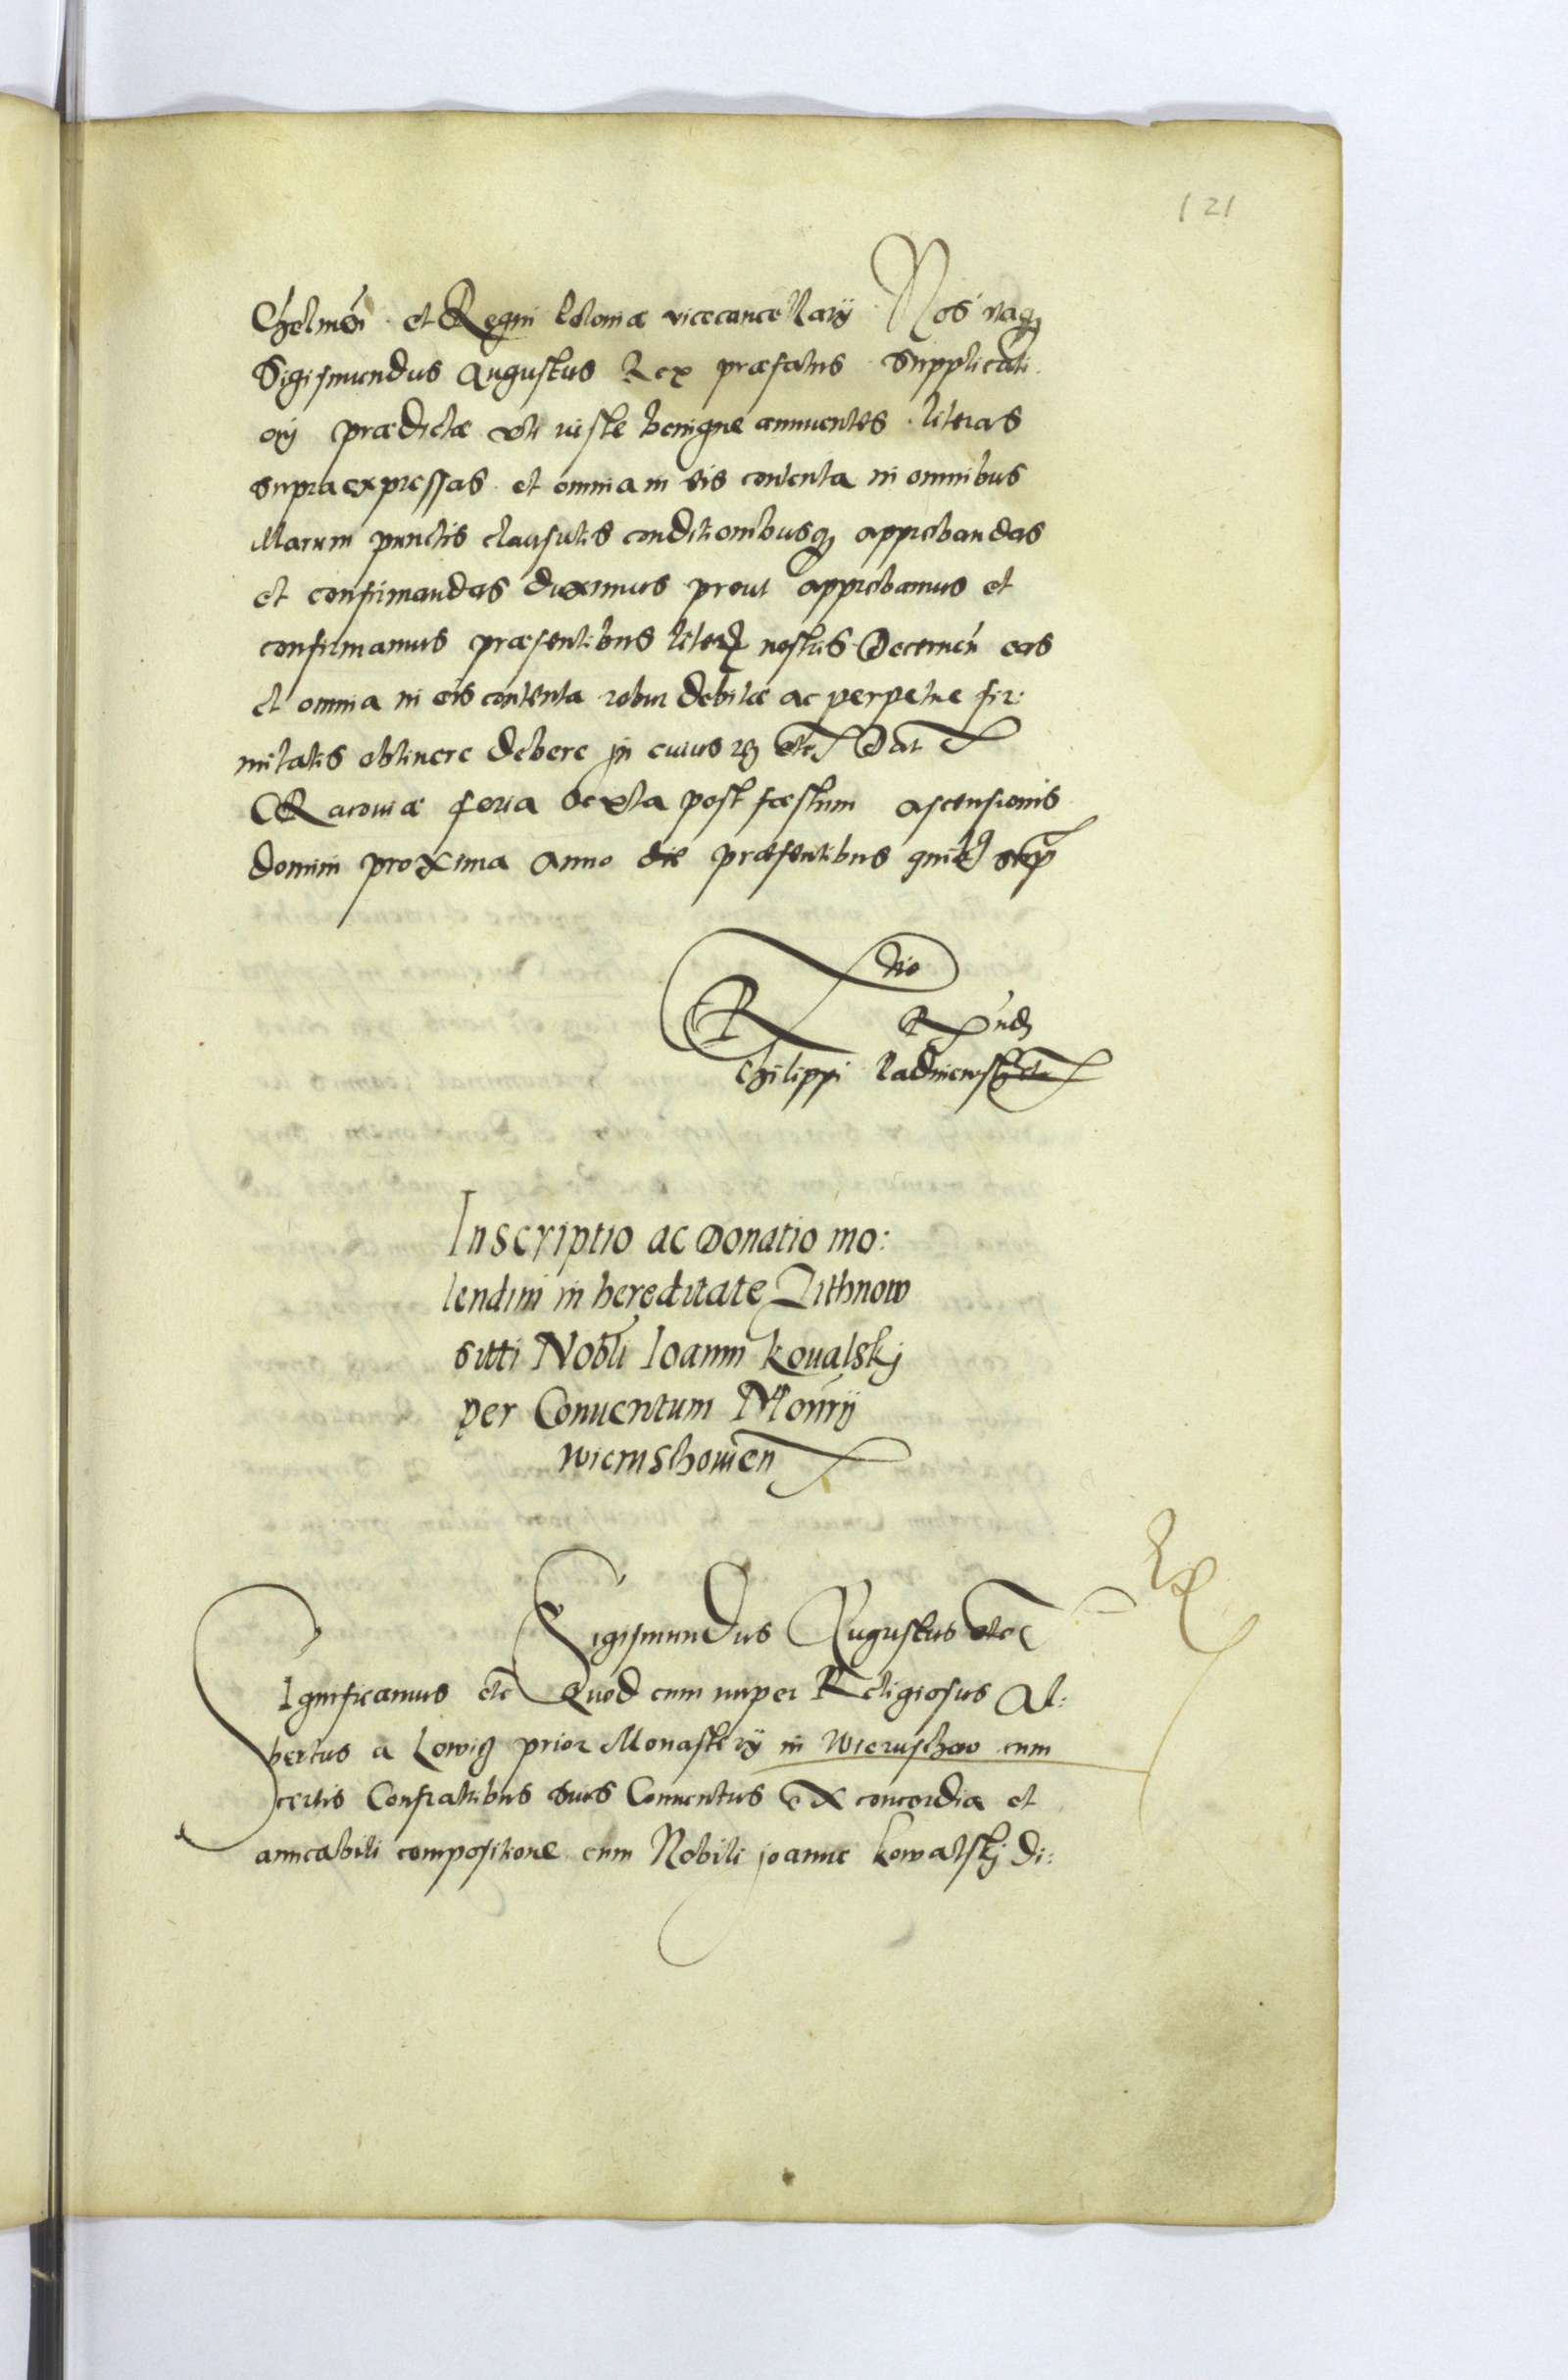 121
Chelmen̄ et Regni Poloniæ vicecancellarÿ Nos itaq₃
Sigismundus Augustus Rex præfatus supplicati
oni prædictæ uti iuste benigne annuentes literas
supra expressas et omnia in eis contenta in omnibus
illarum punctis clausulis conditionibusq₃ approbandas
et confirmandas duximus prout approbamus et
confirmamus præsentibus literis nostris Decernen̄ eas
et omnia in eis contenta robur debitæ ac perpetuæ fir:
mitatis obtinere debere In cuius rei etc Dat
CRacoviæ feria sexta post fæstum ascensionis
domini proxima Anno die præsentibus quibus supra
R tio
R̄ndi
Philippi Padniewskj etc
Inscriptio ac Donatio mo:
lendini in hereditate Zithnow
sitti Nobli Ioanni kovalskj
per Conuentum Monrÿ
wieruschowien
Sigismundus Augustus etc
Significamus etc Quod cum nuper Religiosus Al:
bertus a Lowig prior Monasterÿ in Wieruschow cum
certis Confratribus suis Conventus ex concordia et
amicabili compositione cum Nobili joanne kowalskj di: